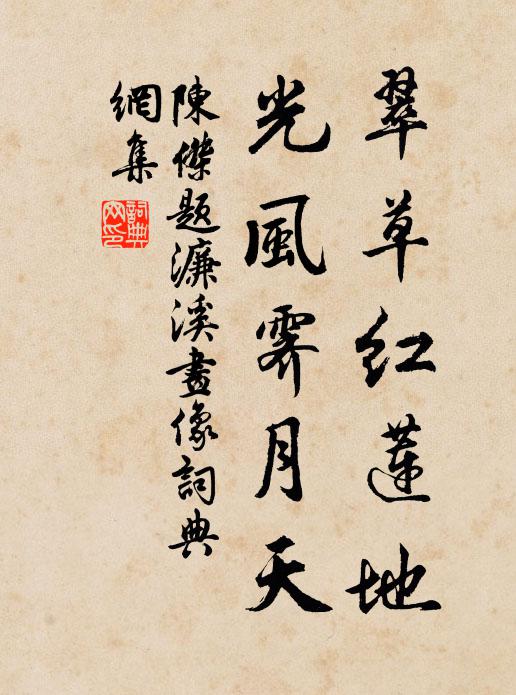 翠草红蓮地
光風霽月天
陳傑題濂溪畫像詞典
網集
詞典
网印